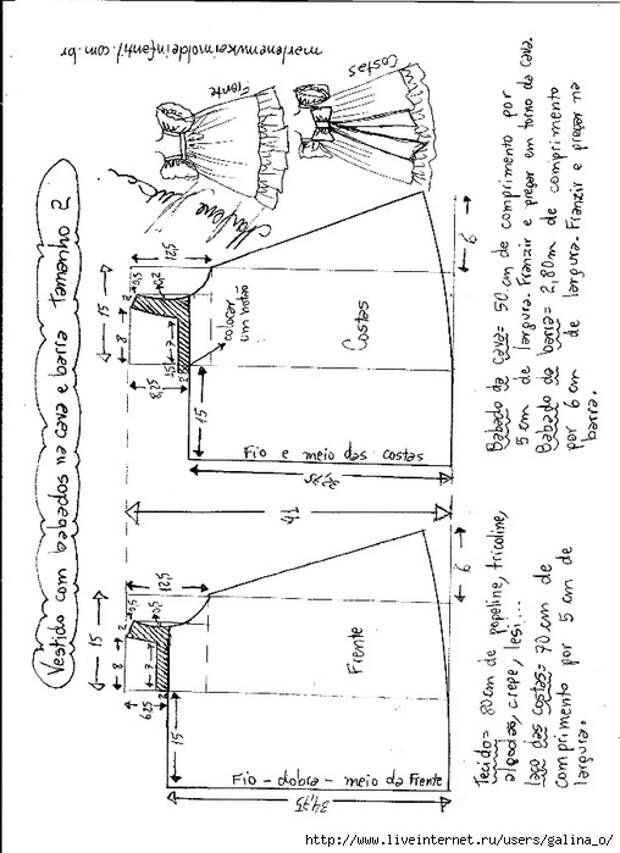 Vestido com babados na cava e barra tamanho 2
marlenemukaimoldeinfantil.com.br
Frente
Costas
Marlene Mukai
15
12,5
0,5
2
0,2
8
7
1,5
2
8,25
colocar
um botão
Costas
6
15
Fio e meio das costas
32,75
41
15
12,5
0,5
2
0,5
8
7
2
6,25
Frente
6
15
Fio - dobra - meio da Frente
34,75
Tecido= 80cm de popeline, tricoline,
algodão, crepe, lesi...
laço das costas= 70 cm de
comprimento por 5 cm de
largura.
Babado da cava= 50 cm de comprimento por
5 cm de largura. Franzir e pregar em torno da cava.
Babado da barra= 2,80m de comprimento
por 6 cm de largura. Franzir e pregar na
barra.
http://www.liveinternet.ru/users/galina_o/